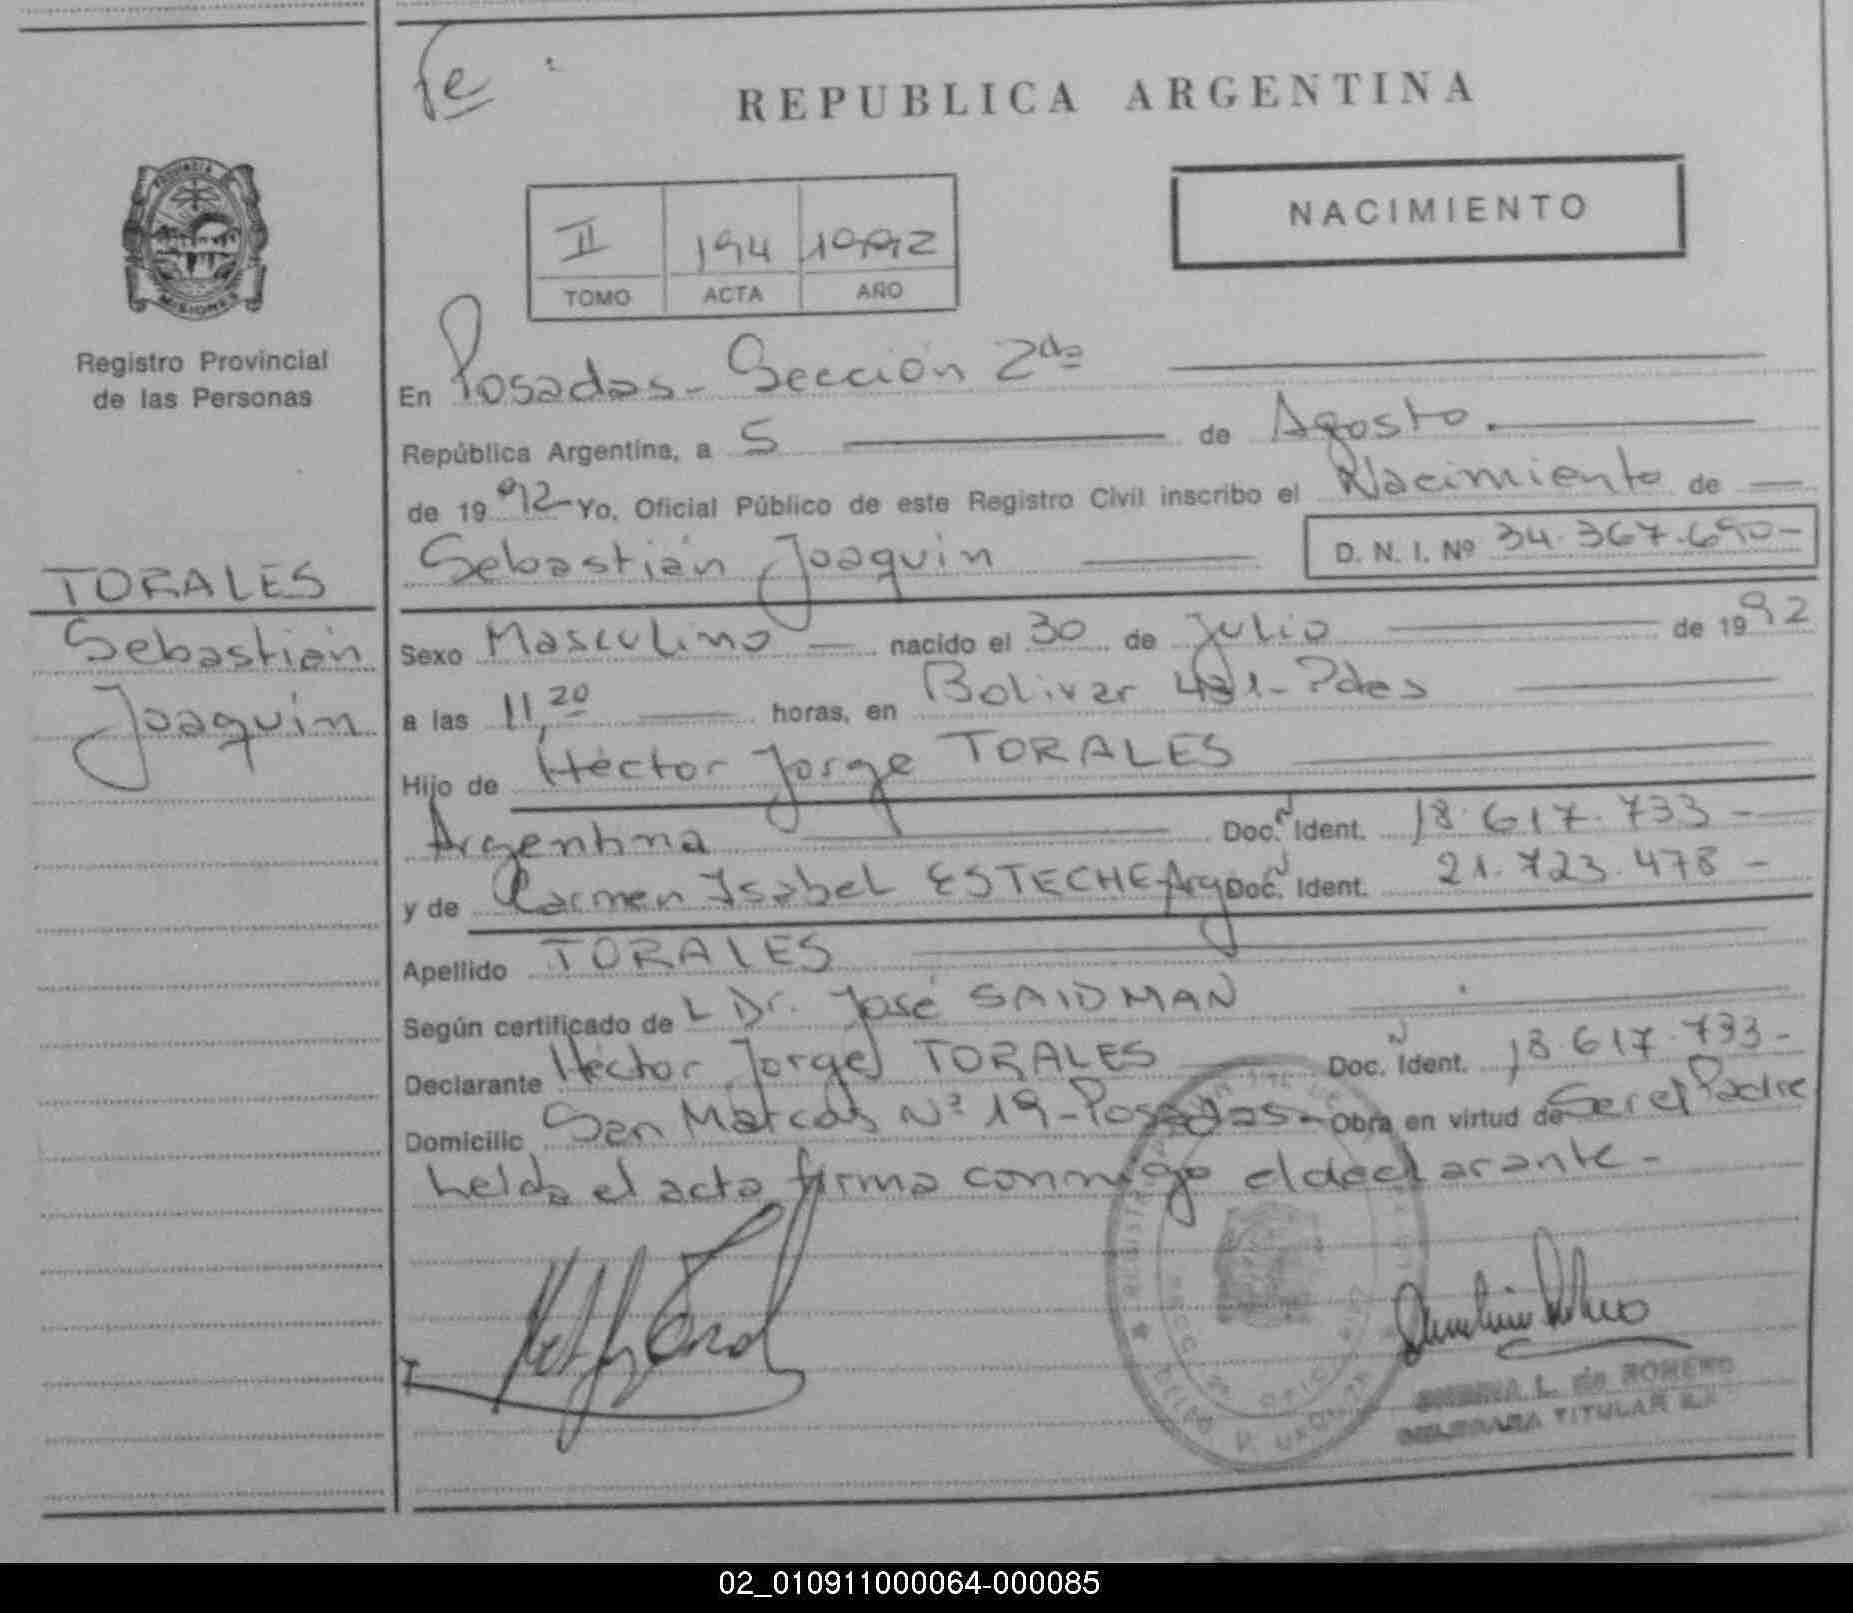 REPUBLICA ARGENTINA
NACIMIENTO
II 194 1992
TOMO ACTA AÑO
PROVINCIA
MISIONES
Registro Provincial
de las Personas
TORALES
Sebastián
Joaquín
En Posadas - Sección 2da
República Argentina, a 5 de Agosto.
de 1992 - Yo, Oficial Público de este Registro Civil inscribo el Nacimiento de
Sebastián Joaquín D. N. I. Nº 34.367.690-
Sexo Masculino nacido el 30 de Julio de 1992
a las 11,20 horas, en Bolivar - Pdas
Hijo de Héctor Jorge TORALES
Argentina Doc. Ident. 18.617.733 -
y de Carmen Isabel ESTECHE Arg. Doc. Ident. 21.723.478 -
Apellido TORALES
Según certificado de L Dr. José SAIDMAN
Declarante Héctor Jorge TORALES Doc. Ident. 18.617.733-
Domicilio San Marcos Nº 19 - Posadas - Obra en virtud de Ser el Padre
Leída el acta firma conmigo el declarante -
L. de ROMERO
DELEGADA TITULAR
02_010911000064-000085